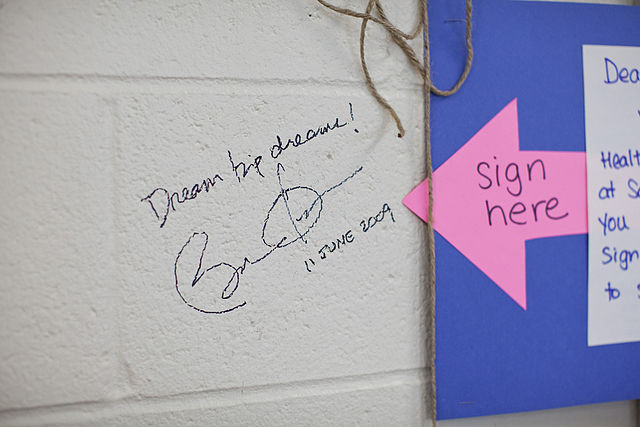 Dream big dreams!
11 JUNE 2009
sign
here
Dea
Healt
at S
you
sign
to